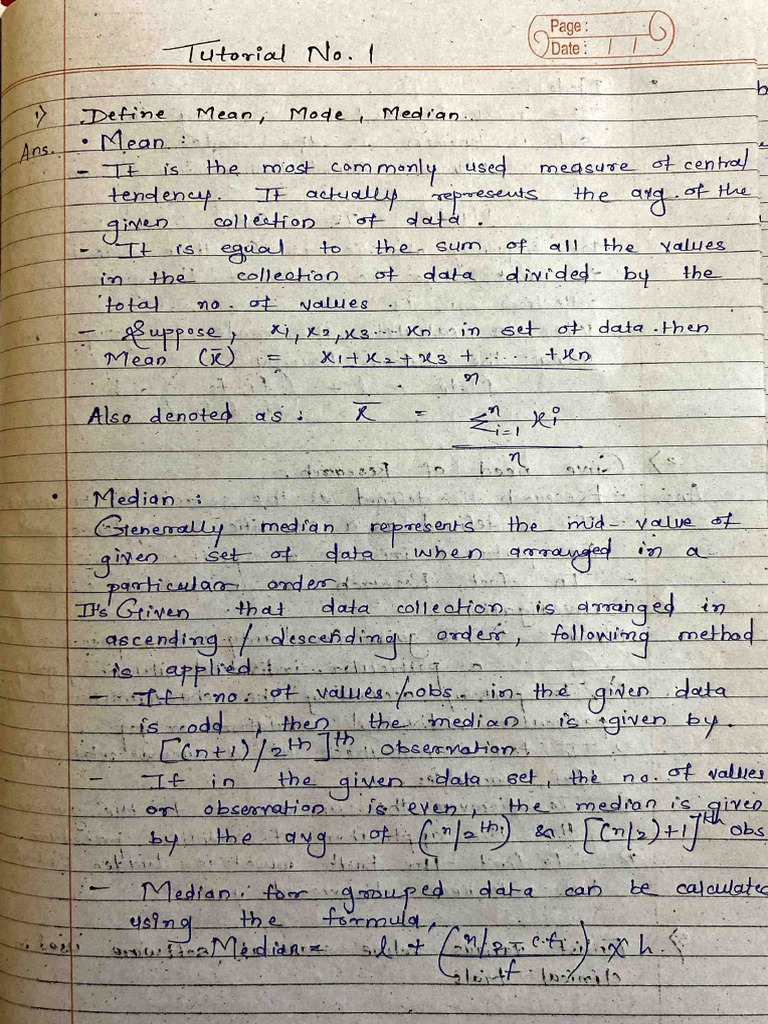 Page :
Date : / /
Tutorial No. 1
1) Define Mean, Mode, Median.
Ans. • Mean :
- It is the most commonly used measure of central
tendency. It actually represents the avg. of the
given collection of data.
- It is equal to the sum of all the values
in the collection of data divided by the
total no. of values.
- Suppose, x1, x2, x3... xn in set of data. then
Mean (x̄) = x1 + x2 + x3 + ...... + xn
n
Also denoted as : x̄ = Σⁿi=1 xi
n
• Median :
Generally median represents the mid-value of
given set of data when arranged in a
particular order
It's Given that data collection is arranged in
ascending / descending order, following method
is applied
- If no. of values/obs. in the given data
is odd, then the median is given by.
[(n+1)/2th]th observation
- If in the given data set, the no. of values
or observation is even, the median is given
by the avg of (n/2th) & [(n/2)+1]th obs
- Median for grouped data can be calculated
using the formula,
Median = l + (n/2 - c.f / f) x h